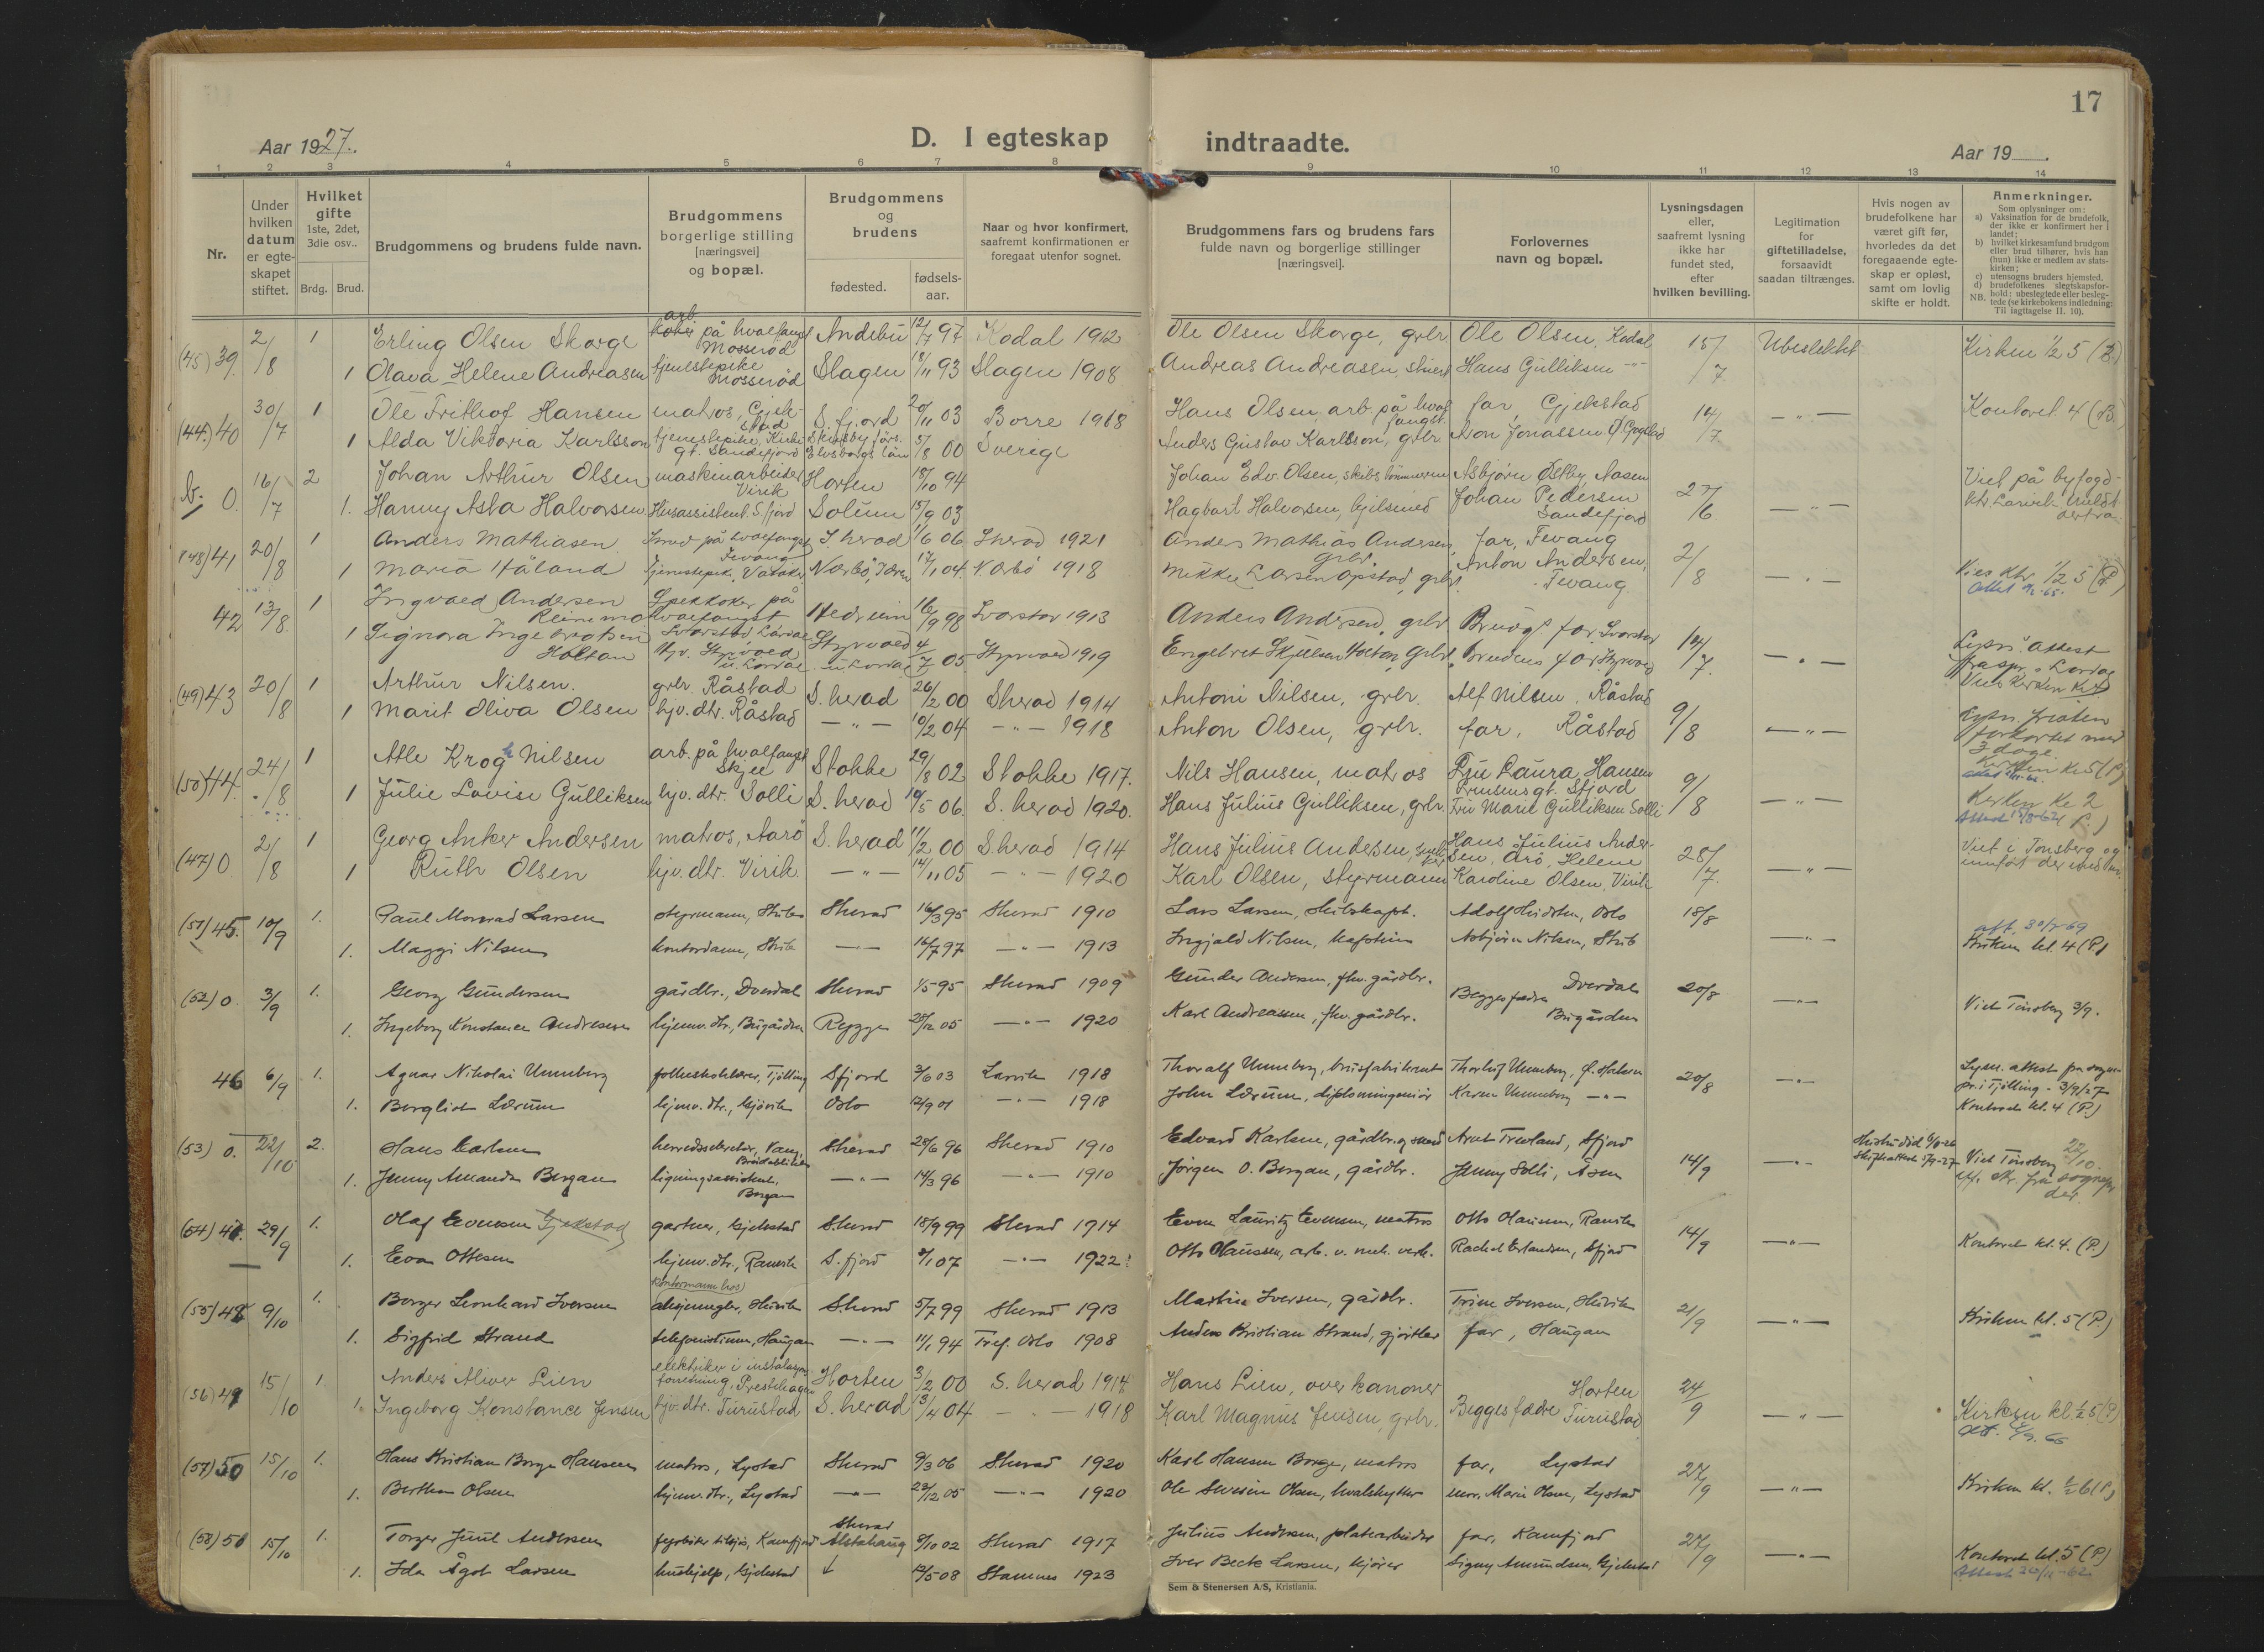 17
Aar 1927.
D. I egteskap indtraadte.
Aar 19
1 2 3 4 5 6 7 8 9 10 11 12 13 14
Nr.
Under hvilken datum er egteskapet stiftet.
Hvilket gifte 1ste, 2det, 3die osv..
Brdg. Brud.
Brudgommens og brudens fulde navn.
Brudgommens borgerlige stilling [næringsvei] og bopæl.
Brudgommens og brudens
fødested.
fødsels-aar.
Naar og hvor konfirmert, saafremt konfirmationen er foregaat utenfor sognet.
Brudgommens fars og brudens fars fulde navn og borgerlige stillinger [næringsvei].
Forlovernes navn og bopæl.
Lysningsdagen eller, saafremt lysning ikke har fundet sted, efter hvilken bevilling.
Legitimation for giftetilladelse, forsaavidt saadan tiltrænges.
Hvis nogen av brudefolkene har været gift før, hvorledes da det foregaaende egteskap er opløst, samt om lovlig skifte er holdt.
Anmerkninger.
Som oplysninger om:
a) Vaksination for de brudefolk, der ikke er konfirmert her i landet;
b) hvilket kirkesamfund brudgom eller brud tilhører, hvis han (hun) ikke er medlem av statskirken;
c) utensogns bruders hjemsted.
d) brudefolkenes slegtskapsforhold: ubeslegtede eller beslegtede (se kirkebokens indledning:
NB. Til iagttagelse II. 10).
(45) 39. 2/8 1 Erling Olsen Skorge arb. på hvalfangst Mosserød Andebu 12/7 97 Kodal 1912 Ole Olsen Skorge, grbr. Ole Olsen, Kodal 15/7 Ubeslektet Kirken 1/2 5 (B)
1 Olava Helene Andreasen tjenestepike Mosserød Slagen 18/11 93 Slagen 1908 Andreas Andreasen, Hans Gulliksen -"-
(44.) 40 30/7 1 Ole Frithof Hansen matros, Gjekstad S.fjord 20/11 03 Borre 1918 Hans Olsen arb. på hvalfangst far, Gjekstad 14/7 -"- Kontoret 4 (B.)
1 Alda Viktoria Karlsson tjenestepike, Kirkegt. Sandefjord Elvsborgs län 5/8 00 Sverige Anders Gustav Karlsson, grbr. Aron Jonassen
b. 0. 16/7 2 Johan Arthur Olsen maskinarbeider Virik Horten 18/10 94 Johan Edv. Olsen, skibstømmerm. Asbjørn Østby, Aasen 27/6 -"- Viet på byfogd-ktr. Larvik.
1. Hanny Asta Halvorsen Husassistent S.fjord Solum 15/9 03 Hagbart Halvorsen, Johan Pedersen Sandefjord
(48) 41 20/8 1 Anders Mathiasen på hvalfangst Fevang S. herad 11/6 06 Sherad 1921 Anders Mathias Andersen, grbr. far, Fevang 2/8 -"- 1/2 5 (P)
1 Maria Håland tjenestepik. Nærbø, Jæren 17/1 04. Nærbø 1918 Mikkel Larsen Opstad, grbr. Anton Andersen, Fevang.
42 13/8. 1 Ingvald Andersen Reinemo Spekkoker på hvalfangst Svarstad, Lardal Hedrum 16/9 98 Svarstad 1913 Anders Andersen, grbr. Brudg. far, Svarstad 14/7. -"- Lysn. attest fra spr. i Lardal
1 Signora Ingebrigtsen Holtan hjv. Styrvold i Lardal Styrvold i Lardal 4/7 05 Styrvold 1919 Engebret Skjelsen Holtan, grbr. Brudens far, Styrvold Viet Kirken kl 4
(49) 43 20/8 1 Arthur Nilsen. grbr. Råstad S. herad 26/2 00 Sherad 1914 Antoni Nilsen, grbr. Alf Nilsen, Råstad 9/8 -"- Lysn. fristen forkortet med 3 dage.
1 Marit Oliva Olsen hjv. dtr. Råstad -"- 10/2 04 -"- 1918 Anton Olsen, grbr. far, Råstad Kirken kl. 5 (P)
(50) 44. 24/8 1 Atle Krogh Nilsen arb. på hvalfangst Skjee Stokke 29/8 02 Stokke 1917. Nils Hansen, matros Fru Laura Hansen S.fjord 9/8 -"- Kirken kl 2
1 Julie Lovise Gulliksen hjv. dtr. Solli S. herad 19/5 06. S. herad 1920. Hans Julius Gulliksen, grbr. Fru Marie Gulliksen Solli
(47) 0. 2/8 1 Georg Anker Andersen matros, Aarø S. herad 11/2 00 Sherad 1914 Hans Julius Andersen, Hans Julius Andersen, Arø, Helene 28/7. -"- Viet i Tønsberg og innført der
1 Ruth Olsen hjv. dtr. Virik. -"- 14/11 05 -"- 1920 Karl Olsen, styrmann Karoline Olsen, Virik
(51) 45. 10/9 1. Paul Larsen styrmann, Sherad 16/3 95 Sherad 1910 Lars Larsen, skibskapt. Adolf Hvidsten, Oslo 18/8 -"- att. 30/7-69
1. Maggi Nilsen kontordame, -"- 14/7 97 -"- 1913 Ingjald Nilsen, Asbjørn Nilsen, Kirken kl. 4 (P)
(52) 0. 3/9 1. Georg Gundersen gårdbr., Dverdal Sherad 1/5 95 Sherad 1909 Gunder Andersen, fhv. gårdbr. Begges fædre Dverdal 20/8 -"- Viet Tønsberg 3/9.
1. Ingeborg Konstance Andreasen hjemv. dtr., Bugården Rygge 25/12 05 -"- 1920 Karl Andreassen, fhv. gårdbr. Bugården
46 6/9 1. Agnar Nikolai Unneberg folkeskolelærer, Tjølling Sfjord 3/6 03 Larvik 1918 Thoralf Unneberg, brusfabrikant Thorleif Unneberg, 20/8 -"- Lysn. attest fra sogne-pr. i Tjølling - 3/9/27
1. Bergliot Lærum hjemv. dtr., Gjøvik Oslo 12/9 01 -"- 1918 John Lærum, diplomingeniør Karen Unneberg -"- Kontoret kl. 4 (P.)
(53) 0. 22/10 2. Hans Karlsen herredssekretær, Sherad 28/6 96 Sherad 1910 Edvard Karlsen, gårdbr. og smed Arnt Treoland, Sfjord 14/9 -"- Viet Tønsberg 22/10.
1. Jenny Amanda Bergan ligningsassistent, Bergan -"- 14/3 96 -"- 1910 Jørgen O. Bergan, gårdbr. Jenny Solli, Åsen
(54) 47. 29/9 1. Olaf Evensen Gjekstad gartner, Gjekstad Sherad 18/9 99 Sherad 1914 Even Lauritz Evensen, matros Otto Olaussen, Ranvik 14/9 -"- Kontoret kl. 4. (P.)
1. Eva Ottesen hjemv. dtr., Ranvik S. fjord 07 -"- 1922 Otto Olaussen, arb. v. mek. verk. Rachel Erlandsen, Sfjord
(55) 48 9/10 1. Borger Leonhard Iversen Sherad 5/7 99 Sherad 1913 Martin Iversen, gårdbr. Trine Iversen, 21/9 -"- Kirken kl. 5 (P.)
1. Sigfrid Strand telefonistinne, Haugan -"- 11/1 94 Tref. Oslo 1908 Anders Kristian Strand, gjørtler far, Haugan
(56) 49 15/10 1 Anders Aliver Lien elektriker i instalasjons-forretning, Prestehagen Horten 3/2 00 S. herad 1914 Hans Lien, overkanoner Begges fædre Horten 24/9 -"- Kirken kl. 1/2 5 (P)
1. Ingeborg Konstance Jensen hjv. dtr. Furustad S. herad 13/4 04 -"- 1918 Karl Magnus Jensen, grbr. Furustad
(57) 50 15/10 1. Hans Kristian Borge Hansen matros, Lystad Sherad 9/3 06 Sherad 1920 Karl Hansen Borge, matros far, Lystad 27/9 -"- Kirken kl. 1/2 6 (P)
1. Berthea Olsen hjemv. dtr., Lystad -"- 23/12 05 -"- 1920 Ole Severin Olsen, hvalskytter mor, Marie Olsen, Lystad
(58) 51 15/10 1. Torger Juul Andersen fyrbøter tilsjøs, Kamfjord Sherad 8/10 02 Sherad 1917 Julius Andersen, platearbeider far, Kamfjord 27/9 -"- Kontoret kl. 5 (P)
1. Ida Ågot Larsen hushjelp, Gjekstad Alstahaug 12/5 08 Stamnes 1923 Iver Beck Larsen, Signy Amundsen, Gjekstad
Sem & Stenersen A/S, Kristiania.